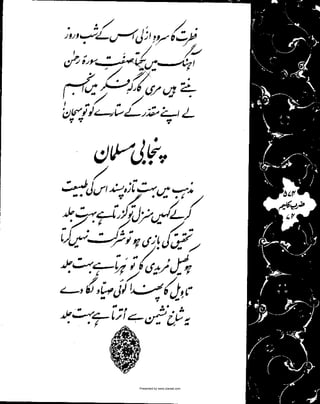 فطرت کا سرودِ ازلی اس کے شب و روز
آہنگ میں یکتا صفتِ سورۂ رحمٰن
بنتے ہیں مری کارگہِ فکر میں انجم
لے اپنے مقدّر کے ستارے کو تو پہچان!
پنجابی مسلمان
مذہب میں بہت تازہ پسند اس کی طبیعت
کر لے کہیں منزل تو گزرتا ہے بہت جلد
تحقیق کی بازی ہو تو شرکت نہیں کرتا
ہو کھیل مریدی کا تو ہرتا ہے بہت جلد
تاویل کا پھندا کوئی صیّاد لگا دے
یہ شاخِ نشیمن سے اُترتا ہے بہت جلد
۵۷۳
ضربِ کلیم
Presented by www.iqbalat.com